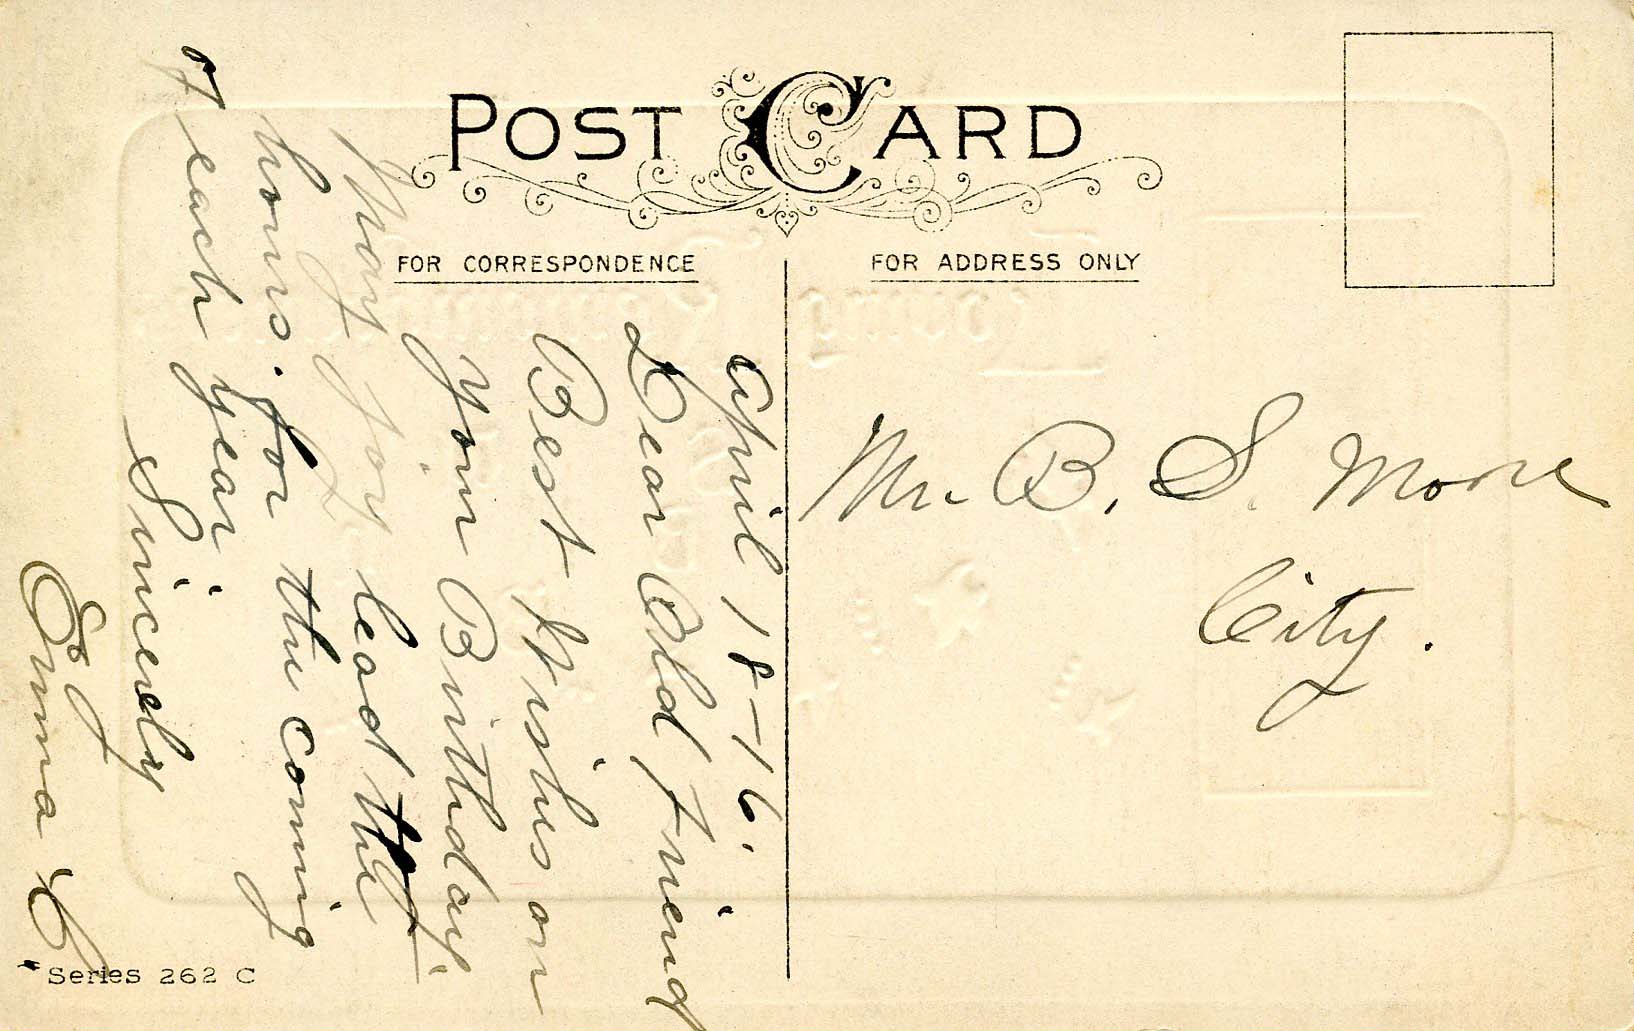 POST CARD
FOR CORRESPONDENCE
FOR ADDRESS ONLY
April 18-16.
Dear Old Friend
Best Wishes on
your Birthday.
May joy lead the
hours. for the coming
of each year.
Sincerely
Emma C
Mr. B. S. Moore
City.
Series 262 C